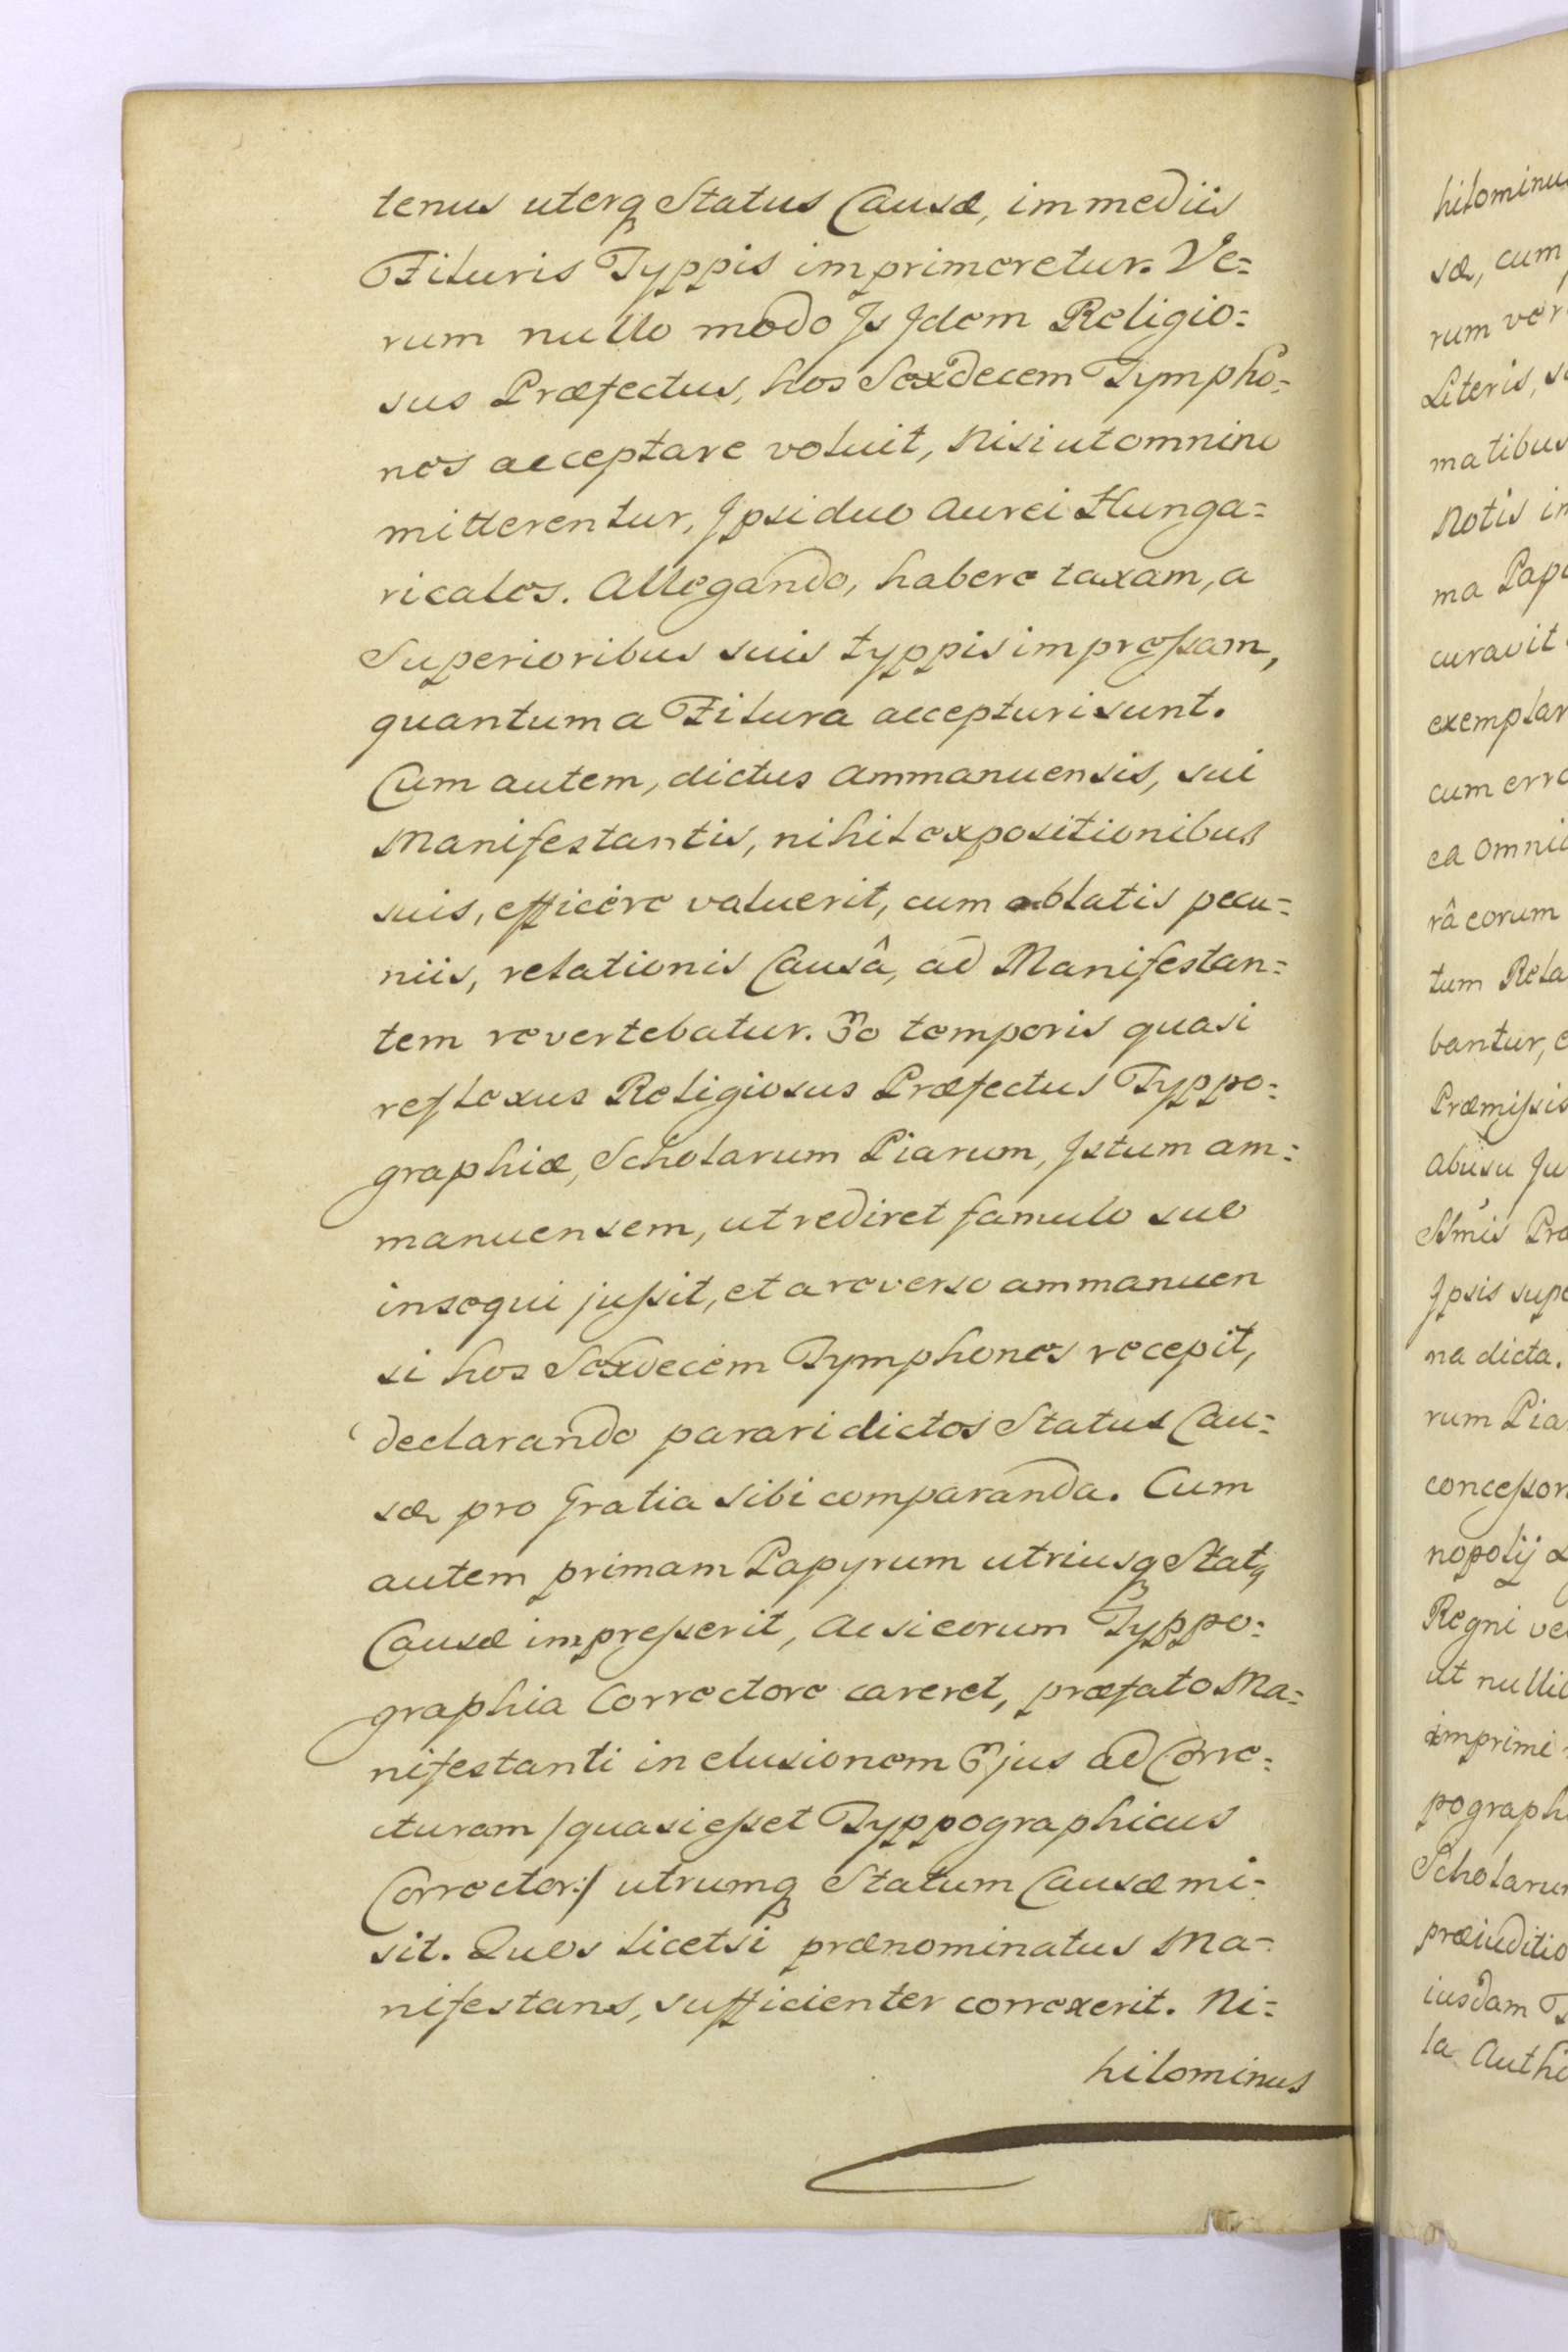 tenus uterq Status Causæ, immediis
Filuris Typpis imprimeretur. Ve=
rum nullo modo Js Jdem Religio=
sus Præfectus, hos Sexdecem Tympho=
nes acceptare voluit, Nisi ut omnino
mitterentur, Jpsi duo Aurei Hunga=
ricales. Allegando, habere taxam, a
Superioribus suis typpis impressam,
quantum a Filura accepturi sunt.
Cum autem, dictus Ammanuensis, sui
Manifestantis, nihil expositionibus
suis, efficere valuerit, cum ablatis pecu=
niis, relationis Causâ, ad Manifestan=
tem revertebatur. Eo temporis quasi
reflexus Religiosus Præfectus Typpo=
graphiæ, Scholarum Piarum, Jstum am=
manuensem, ut rediret famulo suo
insequi jussit, et a reverso ammanuen
si hos Sexdecem Tymphones recepit,
declarando parari dictos Status Cau=
sæ pro Gratia sibi comparanda. Cum
autem primam Papyrum utriusq Statq
Causæ impresserit, Ac si eorum Typpo=
graphia Correctore careret, præfato Ma=
nifestanti in elusionem Ejus ad Corre=
cturam /quasi esset Typpographicus
Corrector:/ utrumq Statum Causæ mi=
sit. Quos licetsi prænominatus Ma=
nifestans, sufficienter correxerit. Ni=
hilominus
hilominus
sæ, cum
rum ver
Literis, s
matibus
Notis in
ma Papi
curavit
exemplar
cum erro
ea omnia
râ eorum
tum Rela
bantur, c
Præmissis
Abusu Ju
Ssmis Pra
Jpsis supe
na dicta.
rum Pia
concessor
nopolij &
Regni ve
ut nulli
imprimi
pograph
Scholarum
præiuditio
iusdam T
la Autho